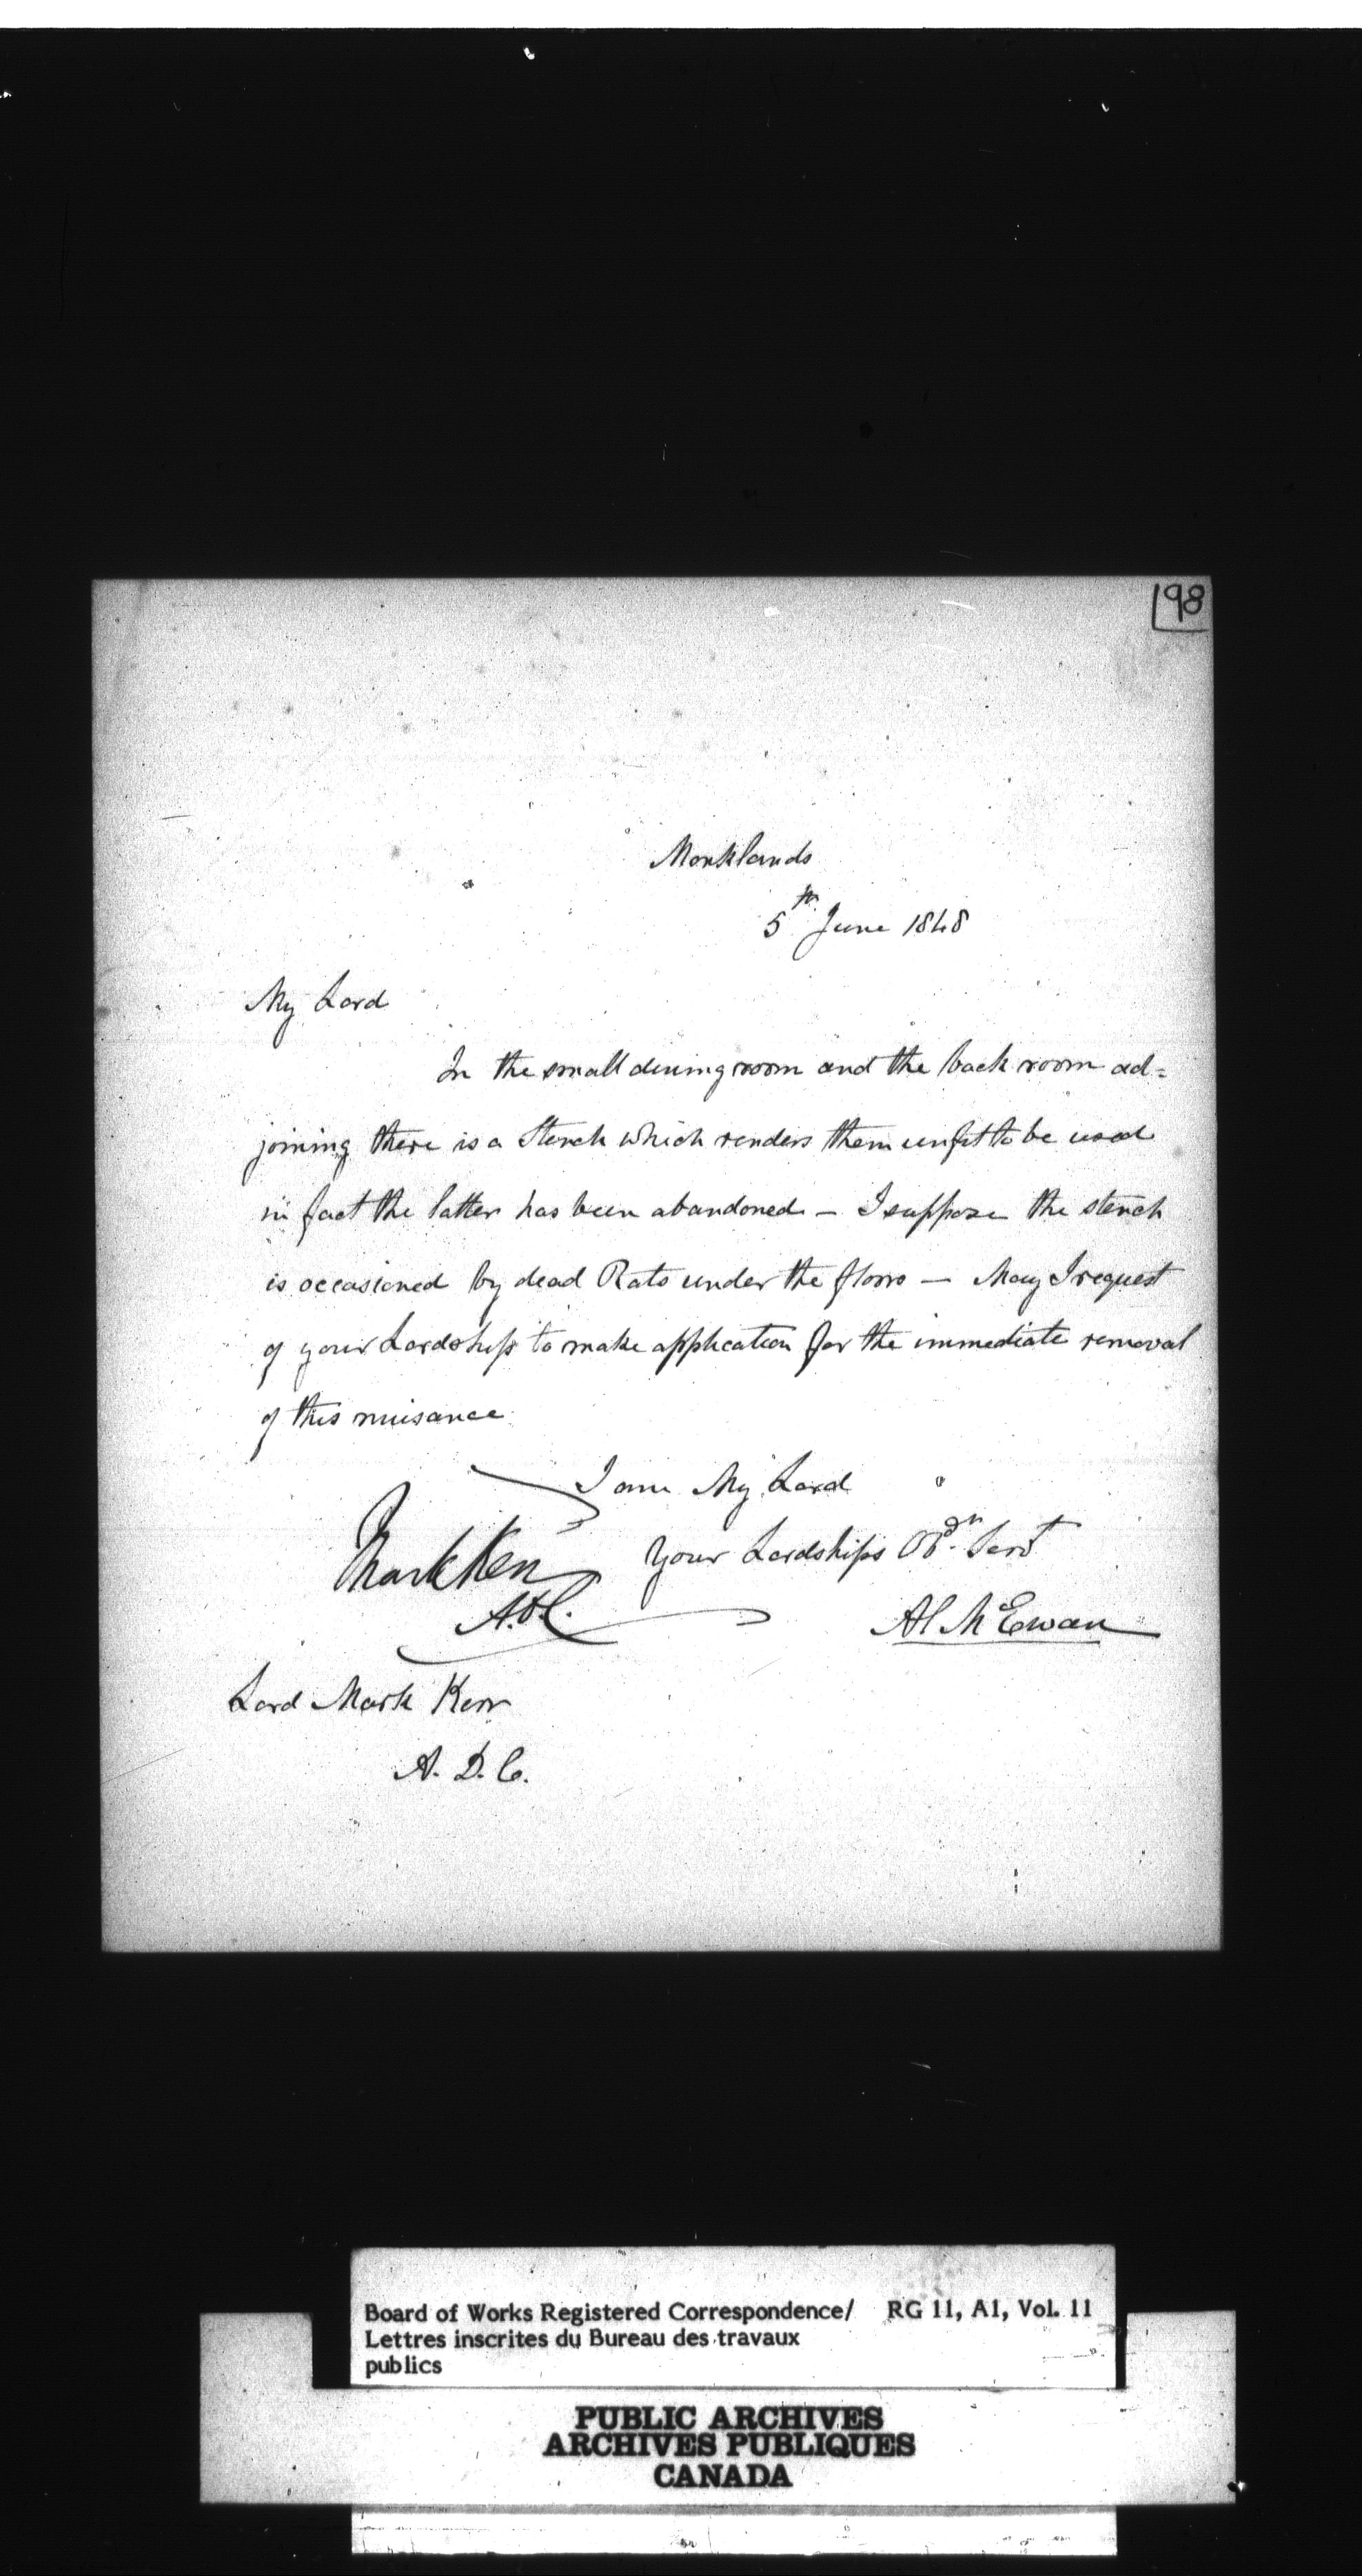 198
Monklands
5th June 1848
My Lord
In the small dining room and the back room ad=
joining there is a Stench which renders them unfit to be used
in fact the latter has been abandoned – I suppose the stench
is occasioned by dead Rats under the floors – May I request
of your Lordship to make application for the immediate removal
of this nuisance
I am My Lord
Your Lordships Obdn Servt
Mark Kerr
A.D.C.
Al McEwan
Lord Mark Kerr
A. D. C.
Board of Works Registered Correspondence/ RG 11, A1, Vol. 11
Lettres inscrites du Bureau des travaux
publics
PUBLIC ARCHIVES
ARCHIVES PUBLIQUES
CANADA